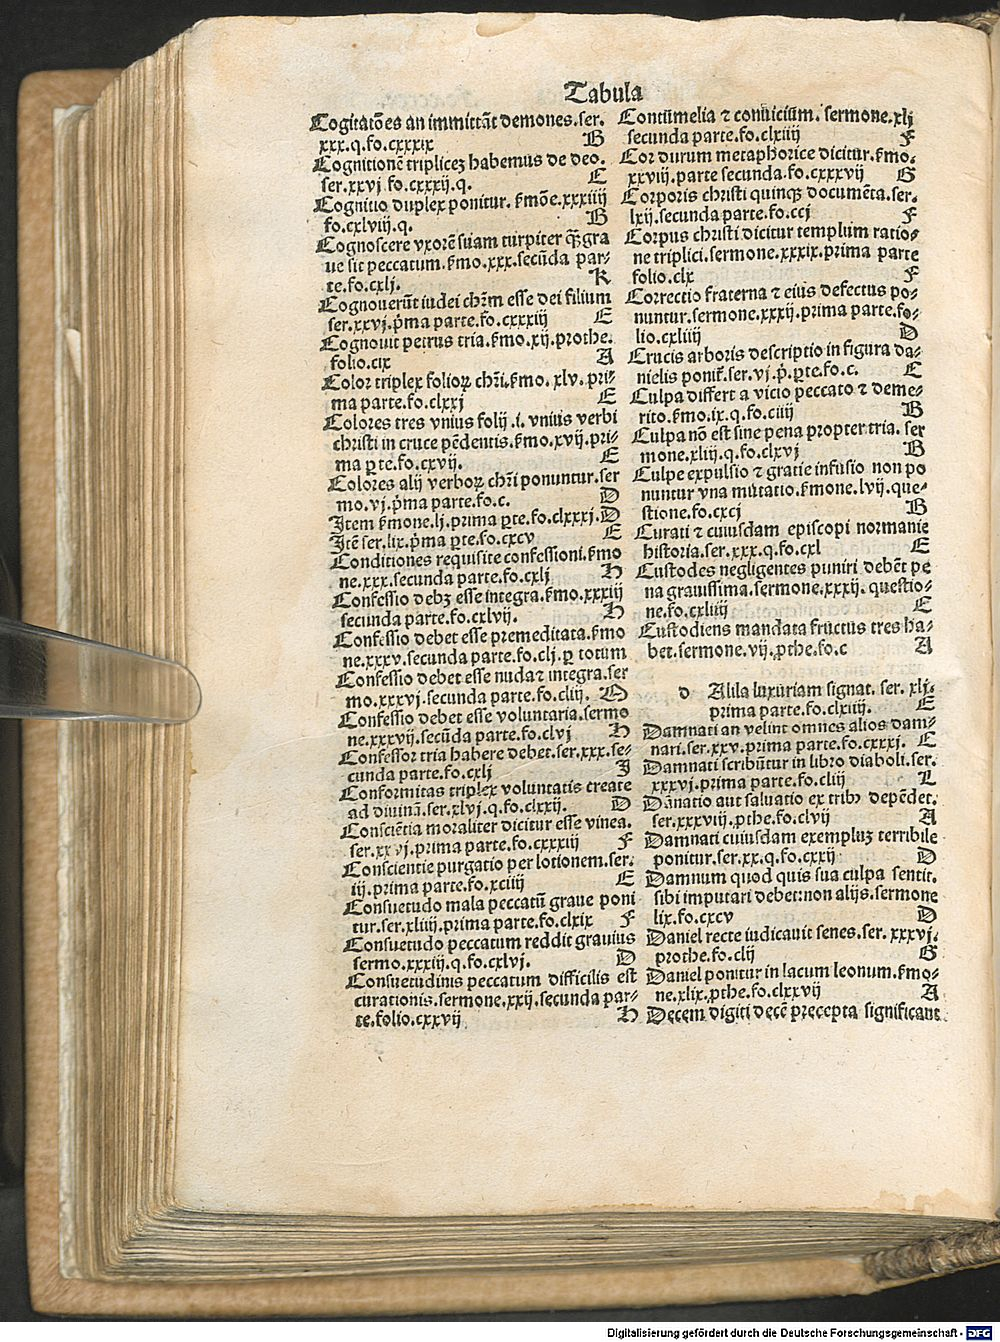 Tabula
Cogitatōes an immittāt demones.ser.
xxx.q.fo.cxxxix B
Cognitionē triplicez habemus de deo.
ser.xxvj.fo.cxxxij.q. E
Cognitio duplex ponitur. ẜmōe.xxxiiij
fo.cxlviij.q. B
Cognoscere vxorē suam turpiter q̄ꝫ gra
ue sit peccatum.ẜmo.xxx.secūda par-
te.fo.cxlj. K
Cognouerūt iudei chr̄m esse dei filium
ser.xxvj.p̄ma parte.fo.cxxxiij E
Cognouit petrus tria.ẜmo.xij.prothe.
folio.cix A
Color triplex folioꝝ chr̄i.ẜmo.xlv.pri-
ma parte.fo.clxxj E
Colores tres vnius folij .i. vnius verbi
christi in cruce pēdentis.ẜmo.xvij.pri-
ma ꝑte.fo.cxvij. E
Colores alij verboꝝ chr̄i ponuntur.ser
mo.vj.p̄ma parte.fo.c. D
Item ẜmone.lj.prima ꝑte.fo.clxxxj.D
Itē ser.lix.p̄ma ꝑte.fo.cxcv E
Conditiones requisite confessioni.ẜmo
ne.xxx.secunda parte.fo.cxlj H
Confessio debꝫ esse integra.ẜmo.xxxiij
secunda parte.fo.cxlvij. H
Confessio debet esse premeditata.ẜmo
ne.xxxv.secunda parte.fo.clj.ꝑ totum
Confessio debet esse nuda ⁊ integra.ser
mo.xxxvj.secunda parte.fo.cliij. D
Confessio debet esse voluntaria.sermo
ne.xxxvij.secūda parte.fo.clvj H
Confessor tria habere debet.ser.xxx.se-
cunda parte.fo.cxlj J
Conformitas triplex voluntatis create
ad diuinā.ser.xlvj.q.fo.clxxij. D
Consciētia moraliter dicitur esse vinea.
ser.xxvj.prima parte.fo.cxxxiij F
Conscientie purgatio per lotionem.ser.
iij.prima parte.fo.xciiij E
Consuetudo mala peccatū graue poni
tur.ser.xliiij.prima parte.fo.clxix F
Consuetudo peccatum reddit grauius
sermo.xxxiij.q.fo.cxlvj. D
Consuetudinis peccatum difficilis est
curationis.sermone.xxij.secunda par-
te.folio.cxxvij H
Contūmelia ⁊ conuiciūm.sermone.xlj
secunda parte.fo.clxiiij F
Cor durum metaphorice dicitur.ẜmo.
xxviij.parte secunda.fo.cxxxvij G
Corporis christi quinqꝫ documēta.ser.
lxij.secunda parte.fo.ccj F
Corpus christi dicitur templum ratio-
ne triplici.sermone.xxxix.prima parte
folio.clx F
Correctio fraterna ⁊ eius defectus po-
nuntur.sermone.xxxij.prima parte.fo-
lio.cxliiij D
Crucis arboris descriptio in figura da-
nielis ponit᷑.ser.vj.p̄.ꝑte.fo.c. E
Culpa differt a vicio peccato ⁊ deme-
rito.ẜmo.ix.q.fo.ciiij B
Culpa nō est sine pena propter tria. ser
mone.xliij.q.fo.clxvj B
Culpe expulsio ⁊ gratie infusio non po
nuntur vna mutatio.ẜmone.lvij.que-
stione.fo.cxcj B
Curati ⁊ cuiusdam episcopi normanie
historia.ser.xxx.q.fo.cxl E
Custodes negligentes puniri debēt pe
na grauissima.sermone.xxxij.questio-
ne.fo.cxliiij E
Custodiens mandata fructus tres ha-
bet.sermone.vij.ꝓthe.fo.c A
d Alila luxuriam signat. ser.xlj.
prima parte.fo.clxiiij. E
Damnati an velint omnes alios dam-
nari.ser.xxv.prima parte.fo.cxxxj. E
Damnati scribūtur in libro diaboli.ser.
xxxvj.prima parte.fo.cliij L
Dānatio aut saluatio ex tribꝰ depēdet.
ser.xxxviij.ꝓthe.fo.clvij A
Damnati cuiusdam exempluꝫ terribile
ponitur.ser.xx.q.fo.cxxij D
Damnum quod quis sua culpa sentit.
sibi imputari debet:non alijs.sermone
lix.fo.cxcv D
Daniel recte iudicauit senes.ser.xxxvj.
prothe.fo.clij G
Daniel ponitur in lacum leonum.ẜmo-
ne.xlix.ꝓthe.fo.clxxvij A
Decem digiti decē precepta significant
Digitalisierung gefördert durch die Deutsche Forschungsgemeinschaft - DFG